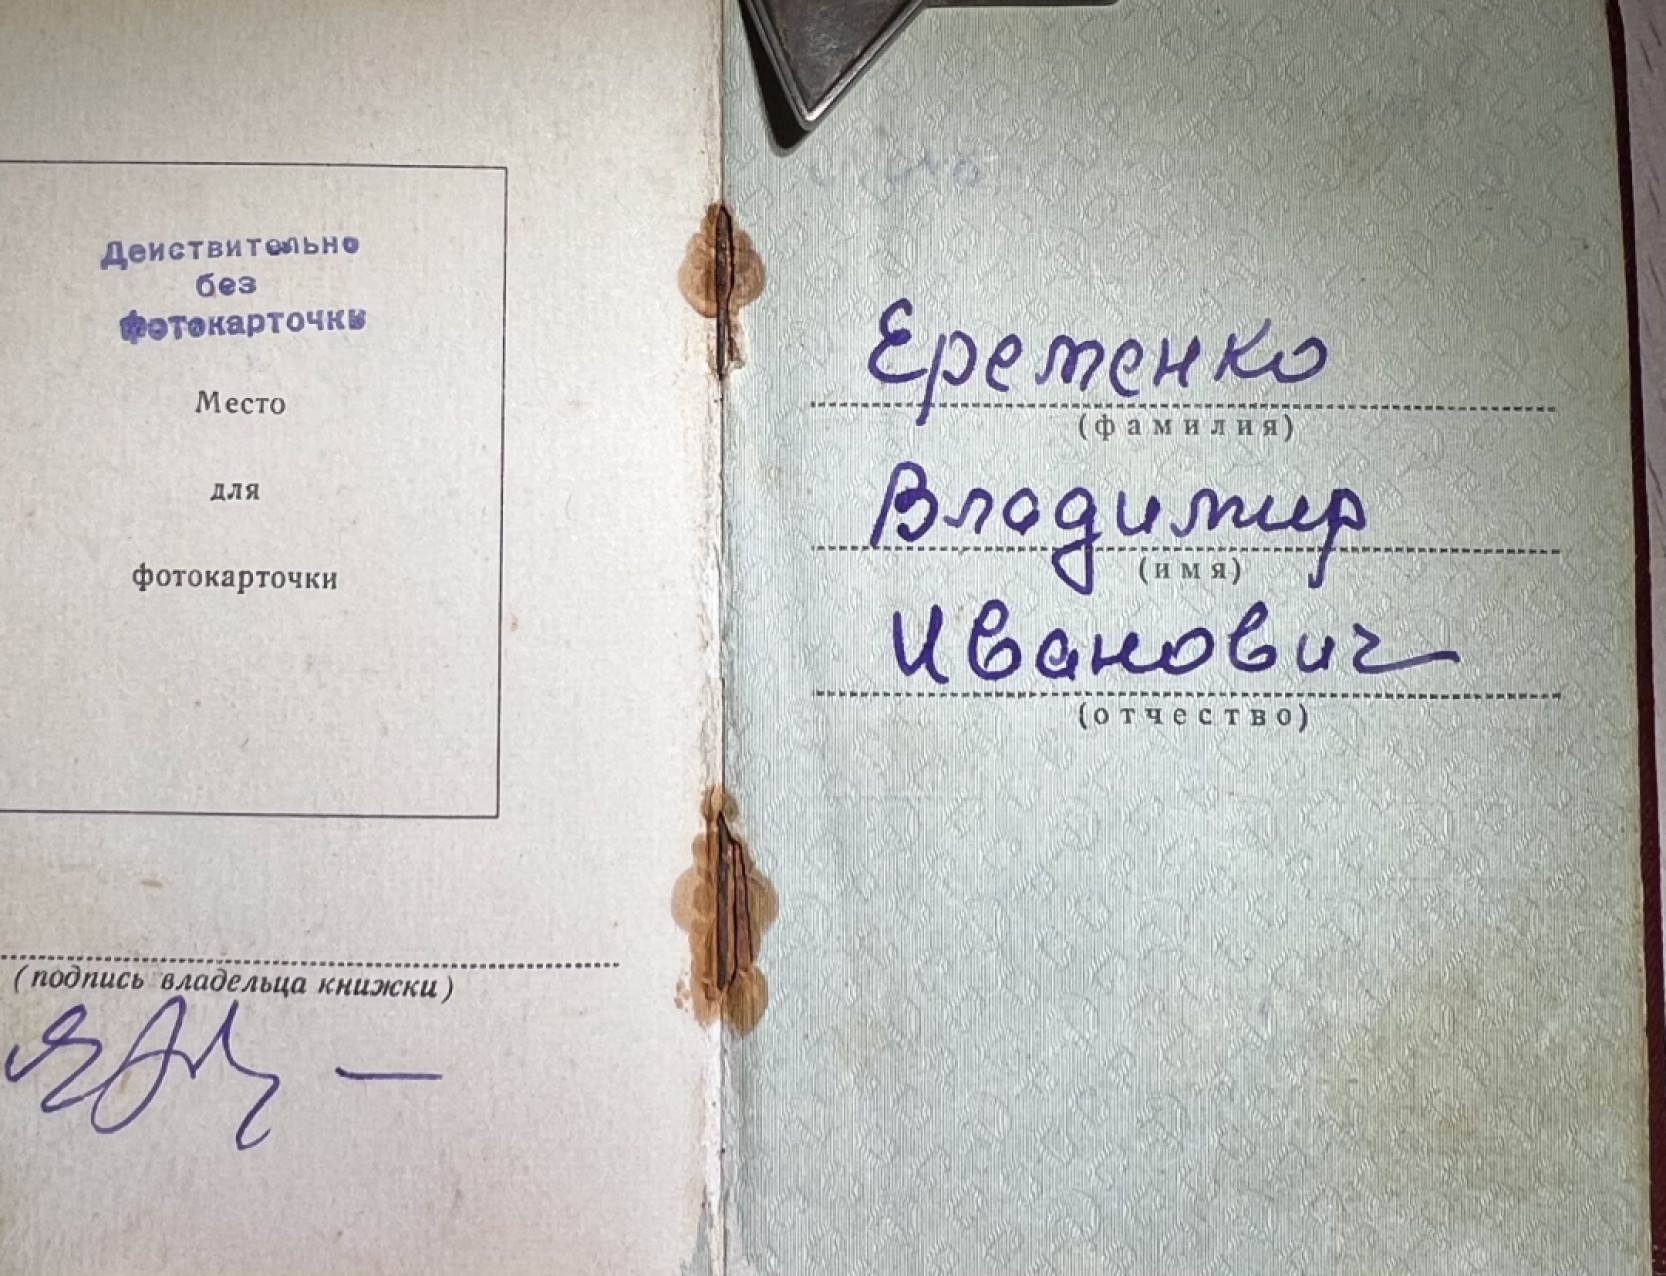 Действительно
без
фотокарточки
Место
для
фотокарточки
(подпись владельца книжки)
Еременко
(фамилия)
Владимир
(имя)
Иванович
(отчество)